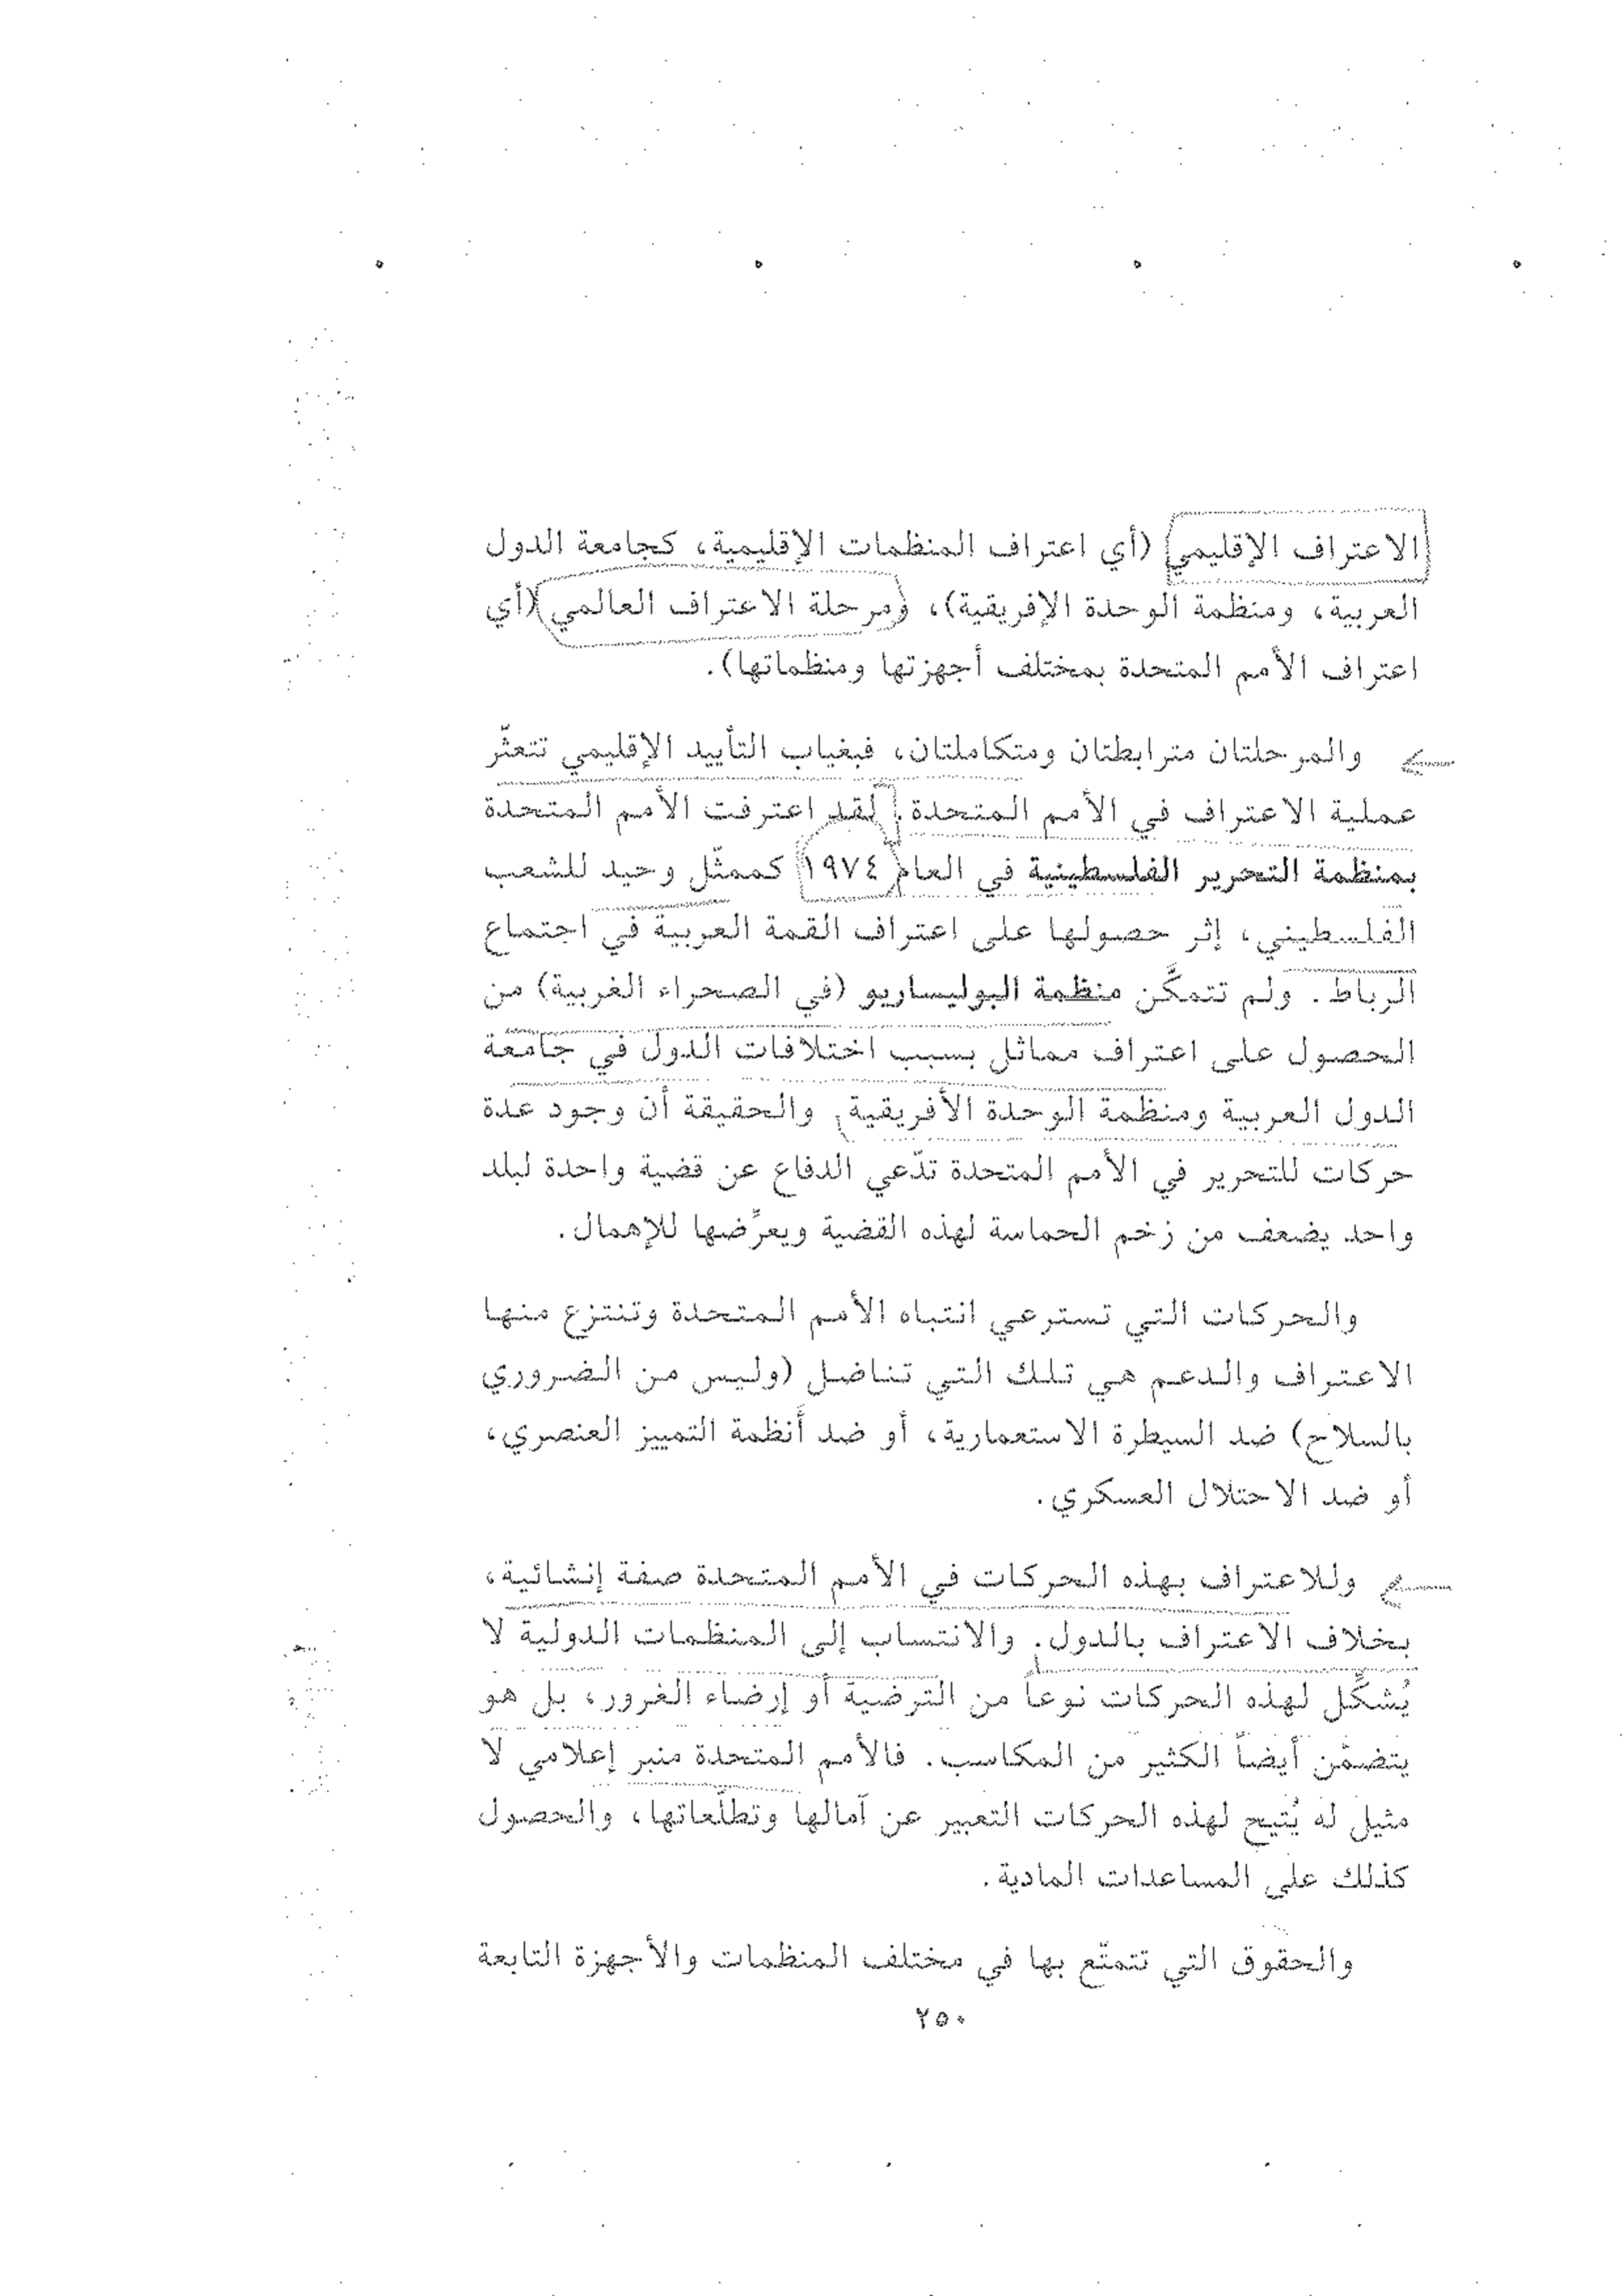 الاعتراف الإقليمي (أي اعتراف المنظمات الإقليمية، كجامعة الدول
العربية، ومنظمة الوحدة الإفريقية)، ومرحلة الاعتراف العالمي (أي
اعتراف الأمم المتحدة بمختلف أجهزتها ومنظماتها).
والمرحلتان مترابطتان ومتكاملتان، فبغياب التأييد الإقليمي تتعثّر
عملية الاعتراف في الأمم المتحدة. لقد اعترفت الأمم المتحدة
بمنظمة التحرير الفلسطينية في العام ١٩٧٤ كممثّل وحيد للشعب
الفلسطيني، إثر حصولها على اعتراف القمة العربية في اجتماع
الرباط. ولم تتمكَّن منظمة البوليساريو (في الصحراء الغربية) من
الحصول على اعتراف مماثل بسبب اختلافات الدول في جامعة
الدول العربية ومنظمة الوحدة الأفريقية. والحقيقة أن وجود عدة
حركات للتحرير في الأمم المتحدة تدّعي الدفاع عن قضية واحدة لبلد
واحد يضعف من زخم الحماسة لهذه القضية ويعرِّضها للإهمال.
والحركات التي تسترعي انتباه الأمم المتحدة وتنتزع منها
الاعتراف والدعم هي تلك التي تناضل (وليس من الضروري
بالسلاح) ضد السيطرة الاستعمارية، أو ضد أنظمة التمييز العنصري،
أو ضد الاحتلال العسكري.
وللاعتراف بهذه الحركات في الأمم المتحدة صفة إنشائية،
بخلاف الاعتراف بالدول. والانتساب إلى المنظمات الدولية لا
يُشكِّل لهذه الحركات نوعاً من الترضية أو إرضاء الغرور، بل هو
يتضمَّن أيضاً الكثير من المكاسب. فالأمم المتحدة منبر إعلامي لا
مثيل له يُتيح لهذه الحركات التعبير عن آمالها وتطلّعاتها، والحصول
كذلك على المساعدات المادية.
والحقوق التي تتمتّع بها في مختلف المنظمات والأجهزة التابعة
٢٥٠